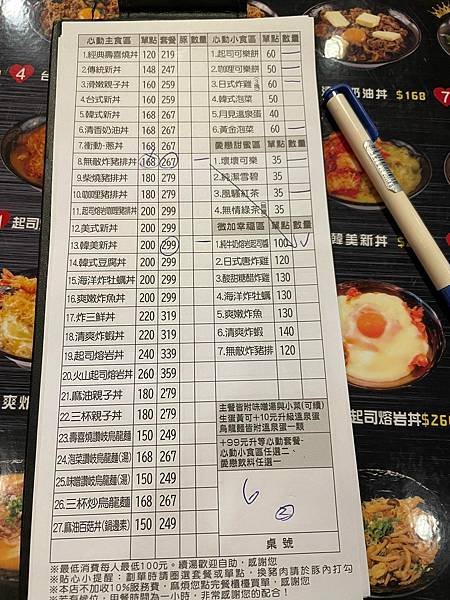 心動主食區 單點 套餐 豚 數量
1.經典壽喜燒丼 120 219
2.傳統新丼 148 247
3.滑嫩親子丼 160 259
4.台式新丼 160 259
5.韓式新丼 168 267
6.清香奶油丼 168 267
7.衝動-蔥丼 168 267
8.無敵炸豬排丼 168 267
9.柴燒豬排丼 180 279
10.咖哩豬排丼 200 299
11.起司熔岩咖哩豬排丼 200 299
12.美式新丼 200 299
13.韓美新丼 200 299
14.韓式豆腐丼 200 299
15.海洋炸牡蠣丼 200 299
16.爽嫩炸魚丼 200 299
17.炸三鮮丼 220 319
18.清爽炸蝦丼 220 319
19.起司熔岩丼 240 339
20.火山起司熔岩丼 260 359
21.麻油親子丼 180 279
22.三杯親子丼 180 279
23.壽喜燒讚岐烏龍麵 150 249
24.泡菜讚岐烏龍麵(湯) 168 267
25.味噌讚岐烏龍麵(湯) 150 249
26.三杯炒烏龍麵 168 267
27.麻油百菇丼(鍋邊素) 150 249
心動小食區 單點 數量
1.起司可樂餅 60
2.咖哩可樂餅 50
3.日式炸雞 60
4.韓式泡菜 50
5.月見溫泉蛋 40
6.黃金泡菜 60
愛戀甜蜜區 單點 數量
1.壞壞可樂 35
2.純潔雪碧 35
3.風騷紅茶 35
4.無情綠茶 35
微加幸福區 單點 數量
1.純牛奶熔岩起司醬 100
2.日式唐炸雞 120
3.酸甜糖醋炸雞 130
4.海洋炸牡蠣 130
5.爽嫩炸魚 130
6.清爽炸蝦 140
7.無敵炸豬排 120
主餐皆附味噌湯與小菜(可續)
生蛋黃可+10元升級溫泉蛋
烏龍麵皆附溫泉蛋一顆
+99元升等心動套餐
心動小食區任選二、
愛戀飲料任一
6
2
桌號
※最低消費每人最低100元。續湯歡迎自助，感謝您
※貼心小提醒：劃單時請圈選套餐或單點，換豬肉請於豚內打勾
※本店不加收10%服務費，麻煩您點完餐櫃檯買單，感謝您
※若有候位，用餐時間為一小時，非常感謝您的配合！
$168
韓美新丼
起司熔岩丼 $26